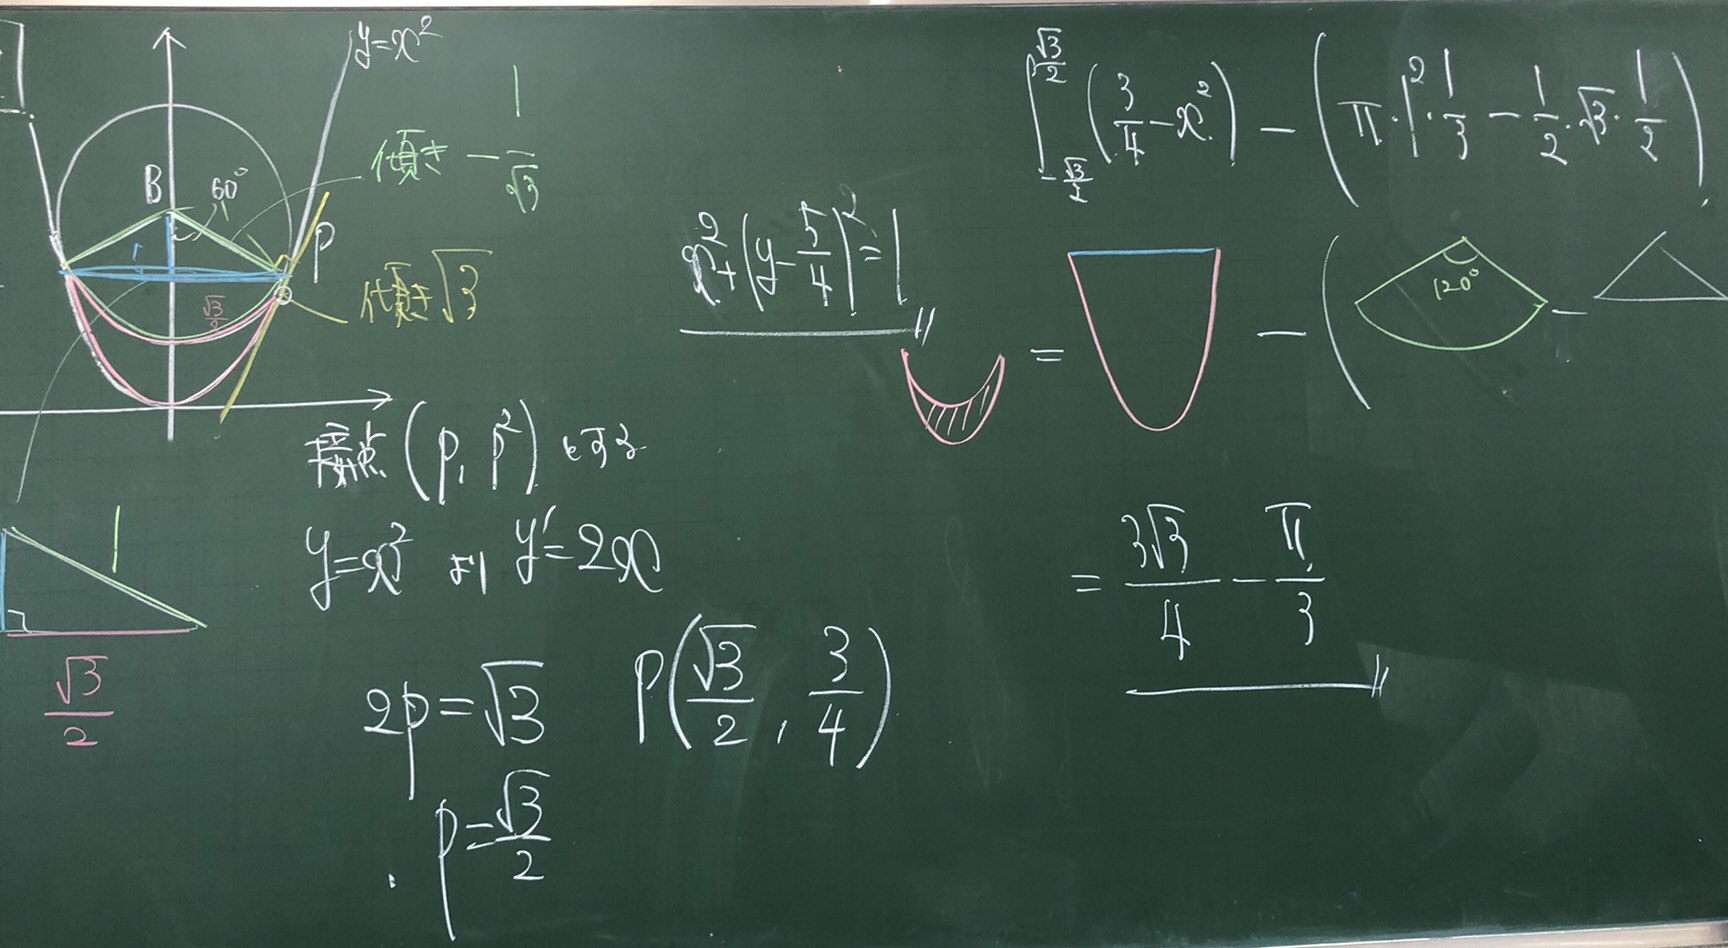 y=x²
傾き -1/√3
B 60° 1
P
傾き√3
√3/2
接点 (p, p²) とする
y=x² より y'=2x
1
√3/2
2p=√3
p=√3/2
P(√3/2, 3/4)
x²+(y-5/4)²=1
∫_{-√3/2}^{√3/2} (3/4-x²) - (π・1²・1/3 - 1/2・√3・1/2)
= - ( 120° -
= 3√3/4 - π/3